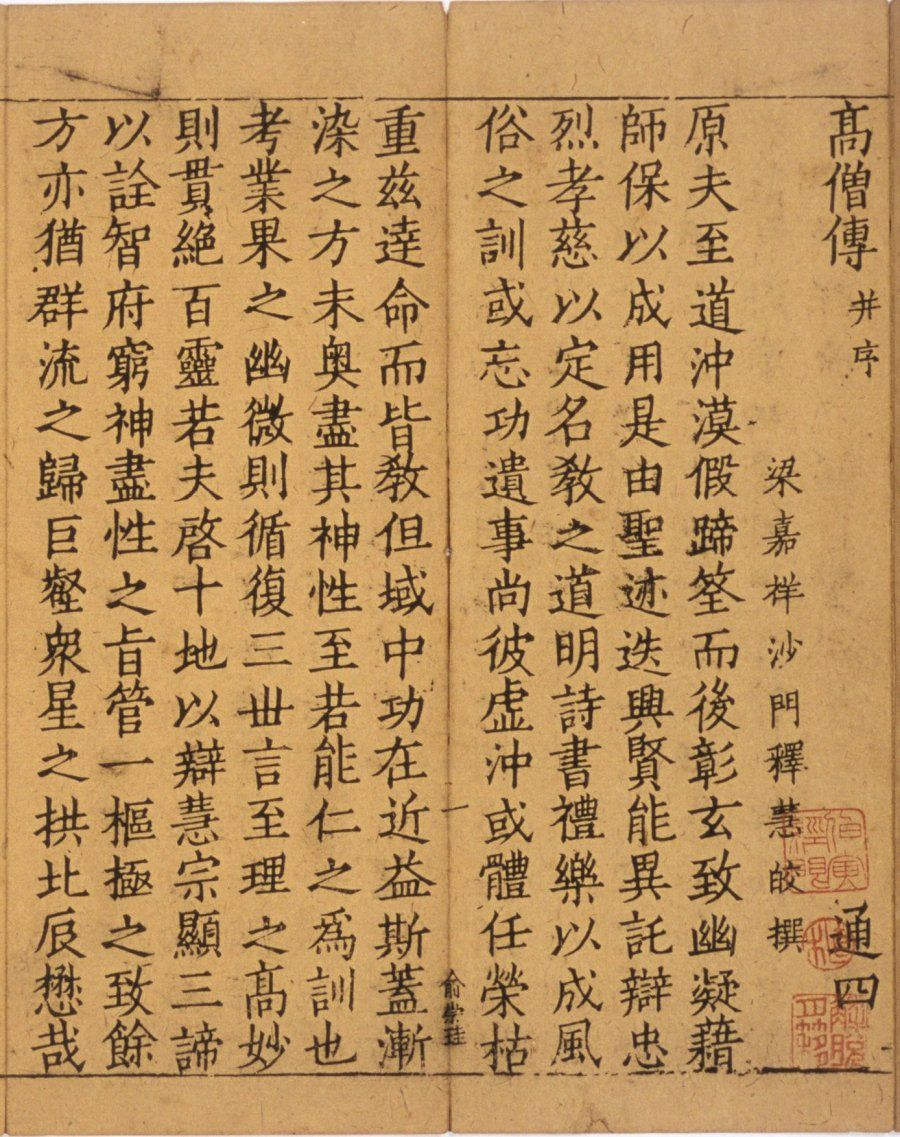 髙僧傳 并序 通四
梁嘉祥沙門釋慧皎撰
原夫至道沖漠假蹄筌而後彰玄致幽凝藉
師保以成用是由聖迹迭興賢能異託辯忠
烈孝慈以定名敎之道明詩書禮樂以成風
俗之訓或忘功遺事尚彼虛沖或體任榮枯
一
重兹達命而皆敎但域中功在近益斯蓋漸
染之方未奥盡其神性至若能仁之爲訓也
考業果之幽微則循復三丗言至理之髙妙
則貫絕百靈若夫啓十地以辯慧宗顯三諦
以詮智府窮神盡性之旨管一樞極之致餘
方亦猶群流之歸巨壑衆星之拱北辰懋哉